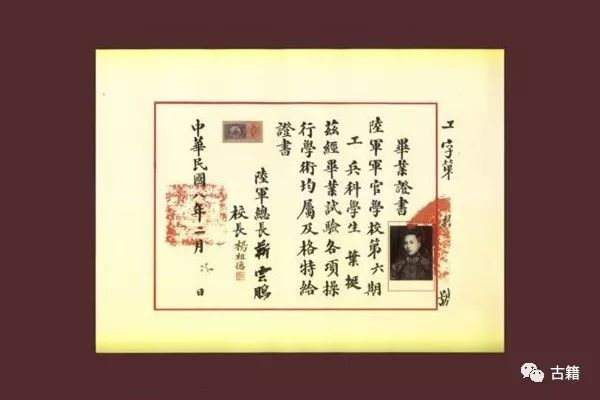 工字第 號
畢業證書
陸軍軍官學校第六期
工兵科學生 葉挺
茲經畢業試驗各項操
行學術均屬及格特給
證書
陸軍總長靳雲鵬
校長楊祖德
中華民國八年二月 日
古籍